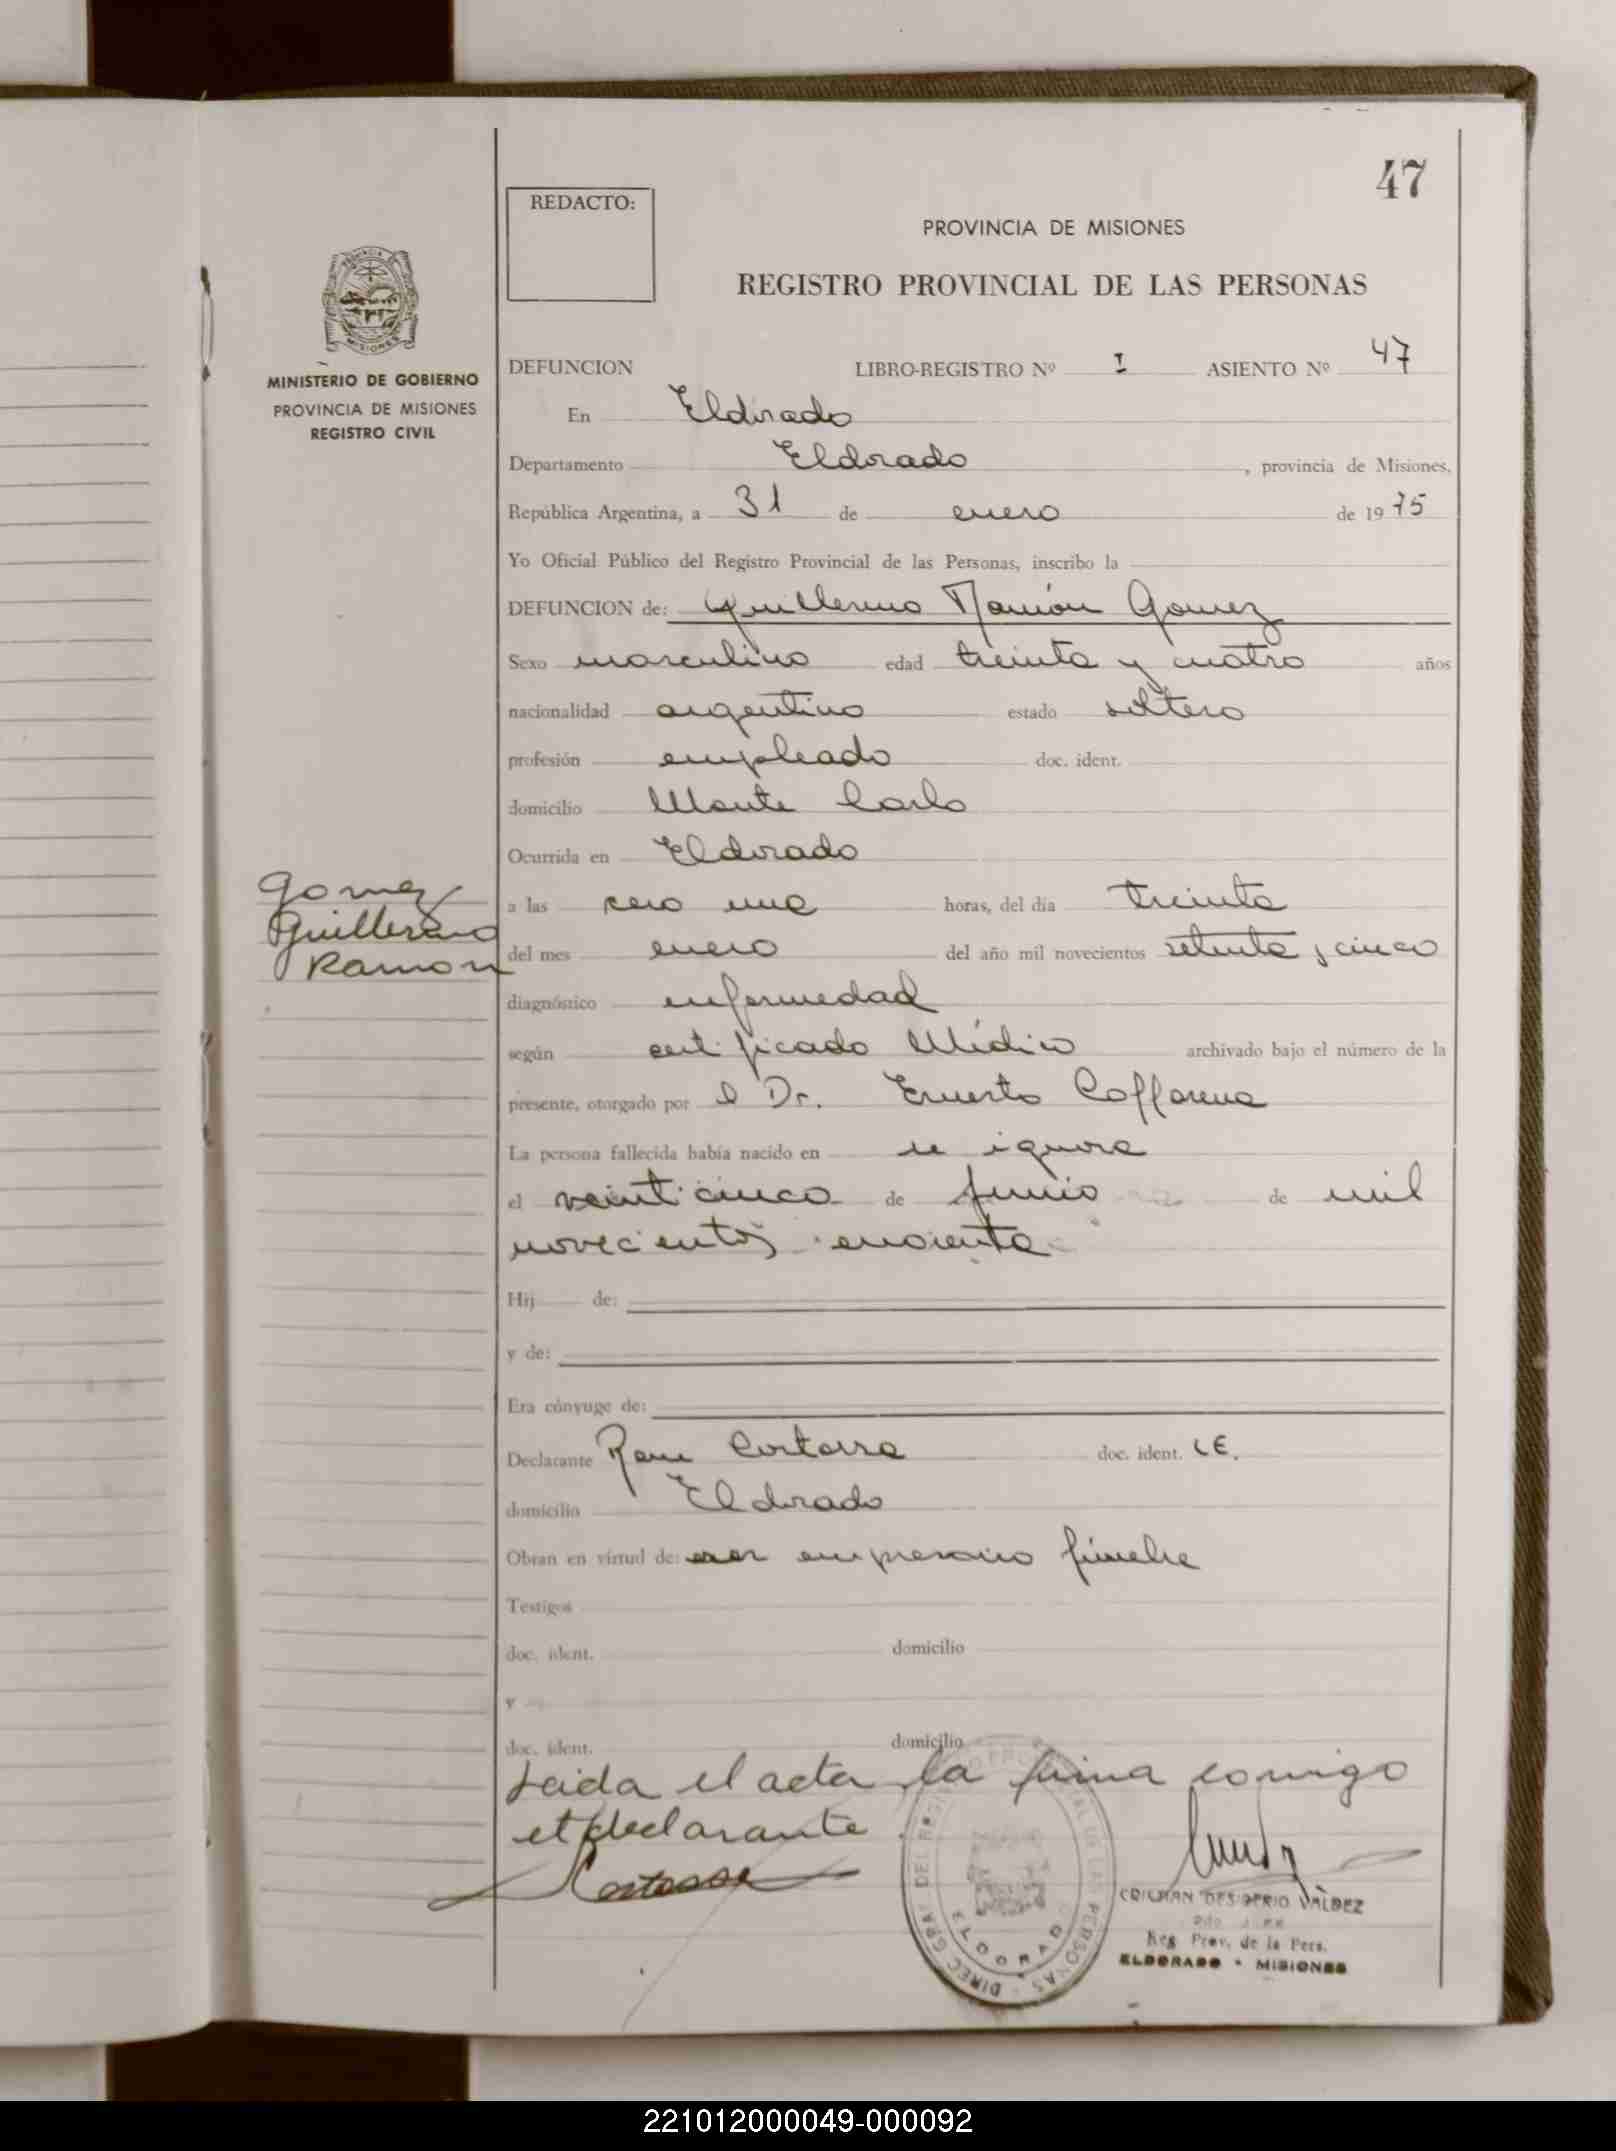 47
REDACTO:
PROVINCIA DE MISIONES
REGISTRO PROVINCIAL DE LAS PERSONAS
MINISTERIO DE GOBIERNO
PROVINCIA DE MISIONES
REGISTRO CIVIL
DEFUNCION LIBRO-REGISTRO Nº I ASIENTO Nº 47
En Eldorado
Departamento Eldorado, provincia de Misiones,
República Argentina, a 31 de enero de 1975
Yo Oficial Público del Registro Provincial de las Personas, inscribo la
DEFUNCION de: Guillermo Ramón Gomez
Sexo masculino edad treinta y cuatro años
nacionalidad argentino estado soltero
profesión empleado doc. ident.
domicilio Monte Carlo
Ocurrida en Eldorado
Gomez
Guillermo
Ramon
a las cero una horas, del día treinta
del mes enero del año mil novecientos setenta y cinco
diagnóstico enfermedad
según certificado Médico archivado bajo el número de la
presente, otorgado por el Dr. Ernesto Caffarena
La persona fallecida había nacido en se ignora
el veinticinco de Junio de mil
novecientos
Hij de:
y de:
Era cónyuge de:
Declarante Rene Cortassa doc. ident. LE.
domicilio Eldorado
Obran en virtud de: ser empresario fúnebre
Testigos
doc. ident. domicilio
y
doc. ident. domicilio
Leida el acta la firma conmigo
el declarante
Cortassa
DIREC. GRAL. DEL REGISTRO PROVINCIAL DE LAS PERSONAS
ELDORADO
DESIDERIO VALDEZ
Reg. Prov. de la Pers.
ELDORADO - MISIONES
221012000049-000092